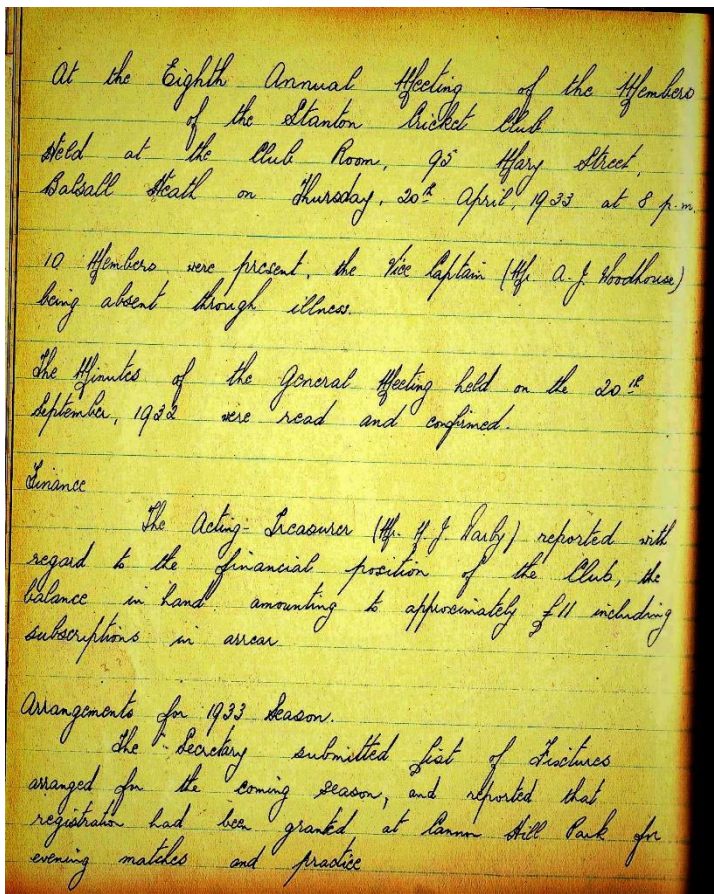 At the Eighth Annual Meeting of the Members
of the Stanton Cricket Club
Held at the Club Room, 95 Mary Street,
Balsall Heath on Thursday, 20th April, 1933 at 8 p.m.
10 Members were present, the Vice Captain (Mr. A. J. Woodhouse)
being absent through illness.
The Minutes of the General Meeting held on the 20th
September, 1932 were read and confirmed.
Finance
The Acting-Treasurer (Mr. H. J. Warby) reported with
regard to the financial position of the Club, the
balance in hand amounting to approximately £11 including
subscriptions in arrear
Arrangements for 1933 Season.
The Secretary submitted list of Fixtures
arranged for the coming season, and reported that
registration had been granted at Cannon Hill Park for
evening matches and practice